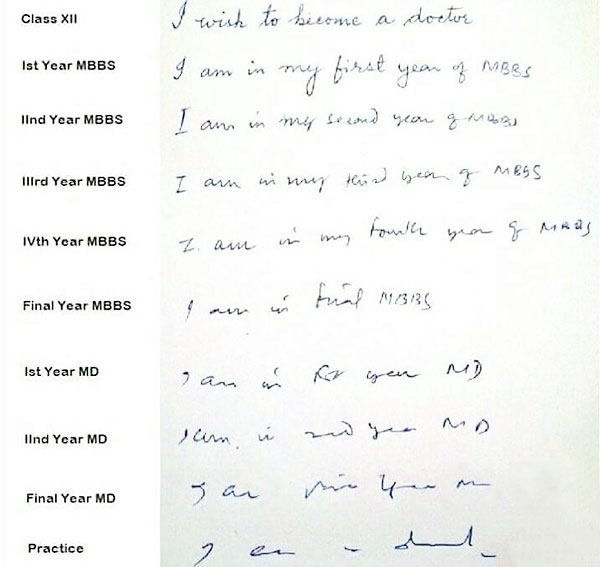 Class XII I wish to become a doctor
Ist Year MBBS I am in my first year of MBBS
IInd Year MBBS I am in my second year of MBBS
IIIrd Year MBBS I am in my third year of MBBS
IVth Year MBBS I. am in my fourth year of MBBS
Final Year MBBS I am in final MBBS
Ist Year MD I am in year MD
IInd Year MD I am in 2nd year MD
Final Year MD I am year
Practice I